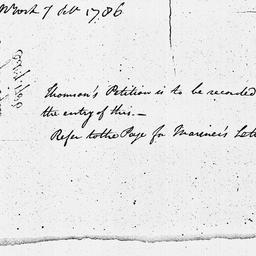 7 1786
Thomson's Petition is to be recorded
the entry of this.—
Refer to the Page for Mariner's Lett